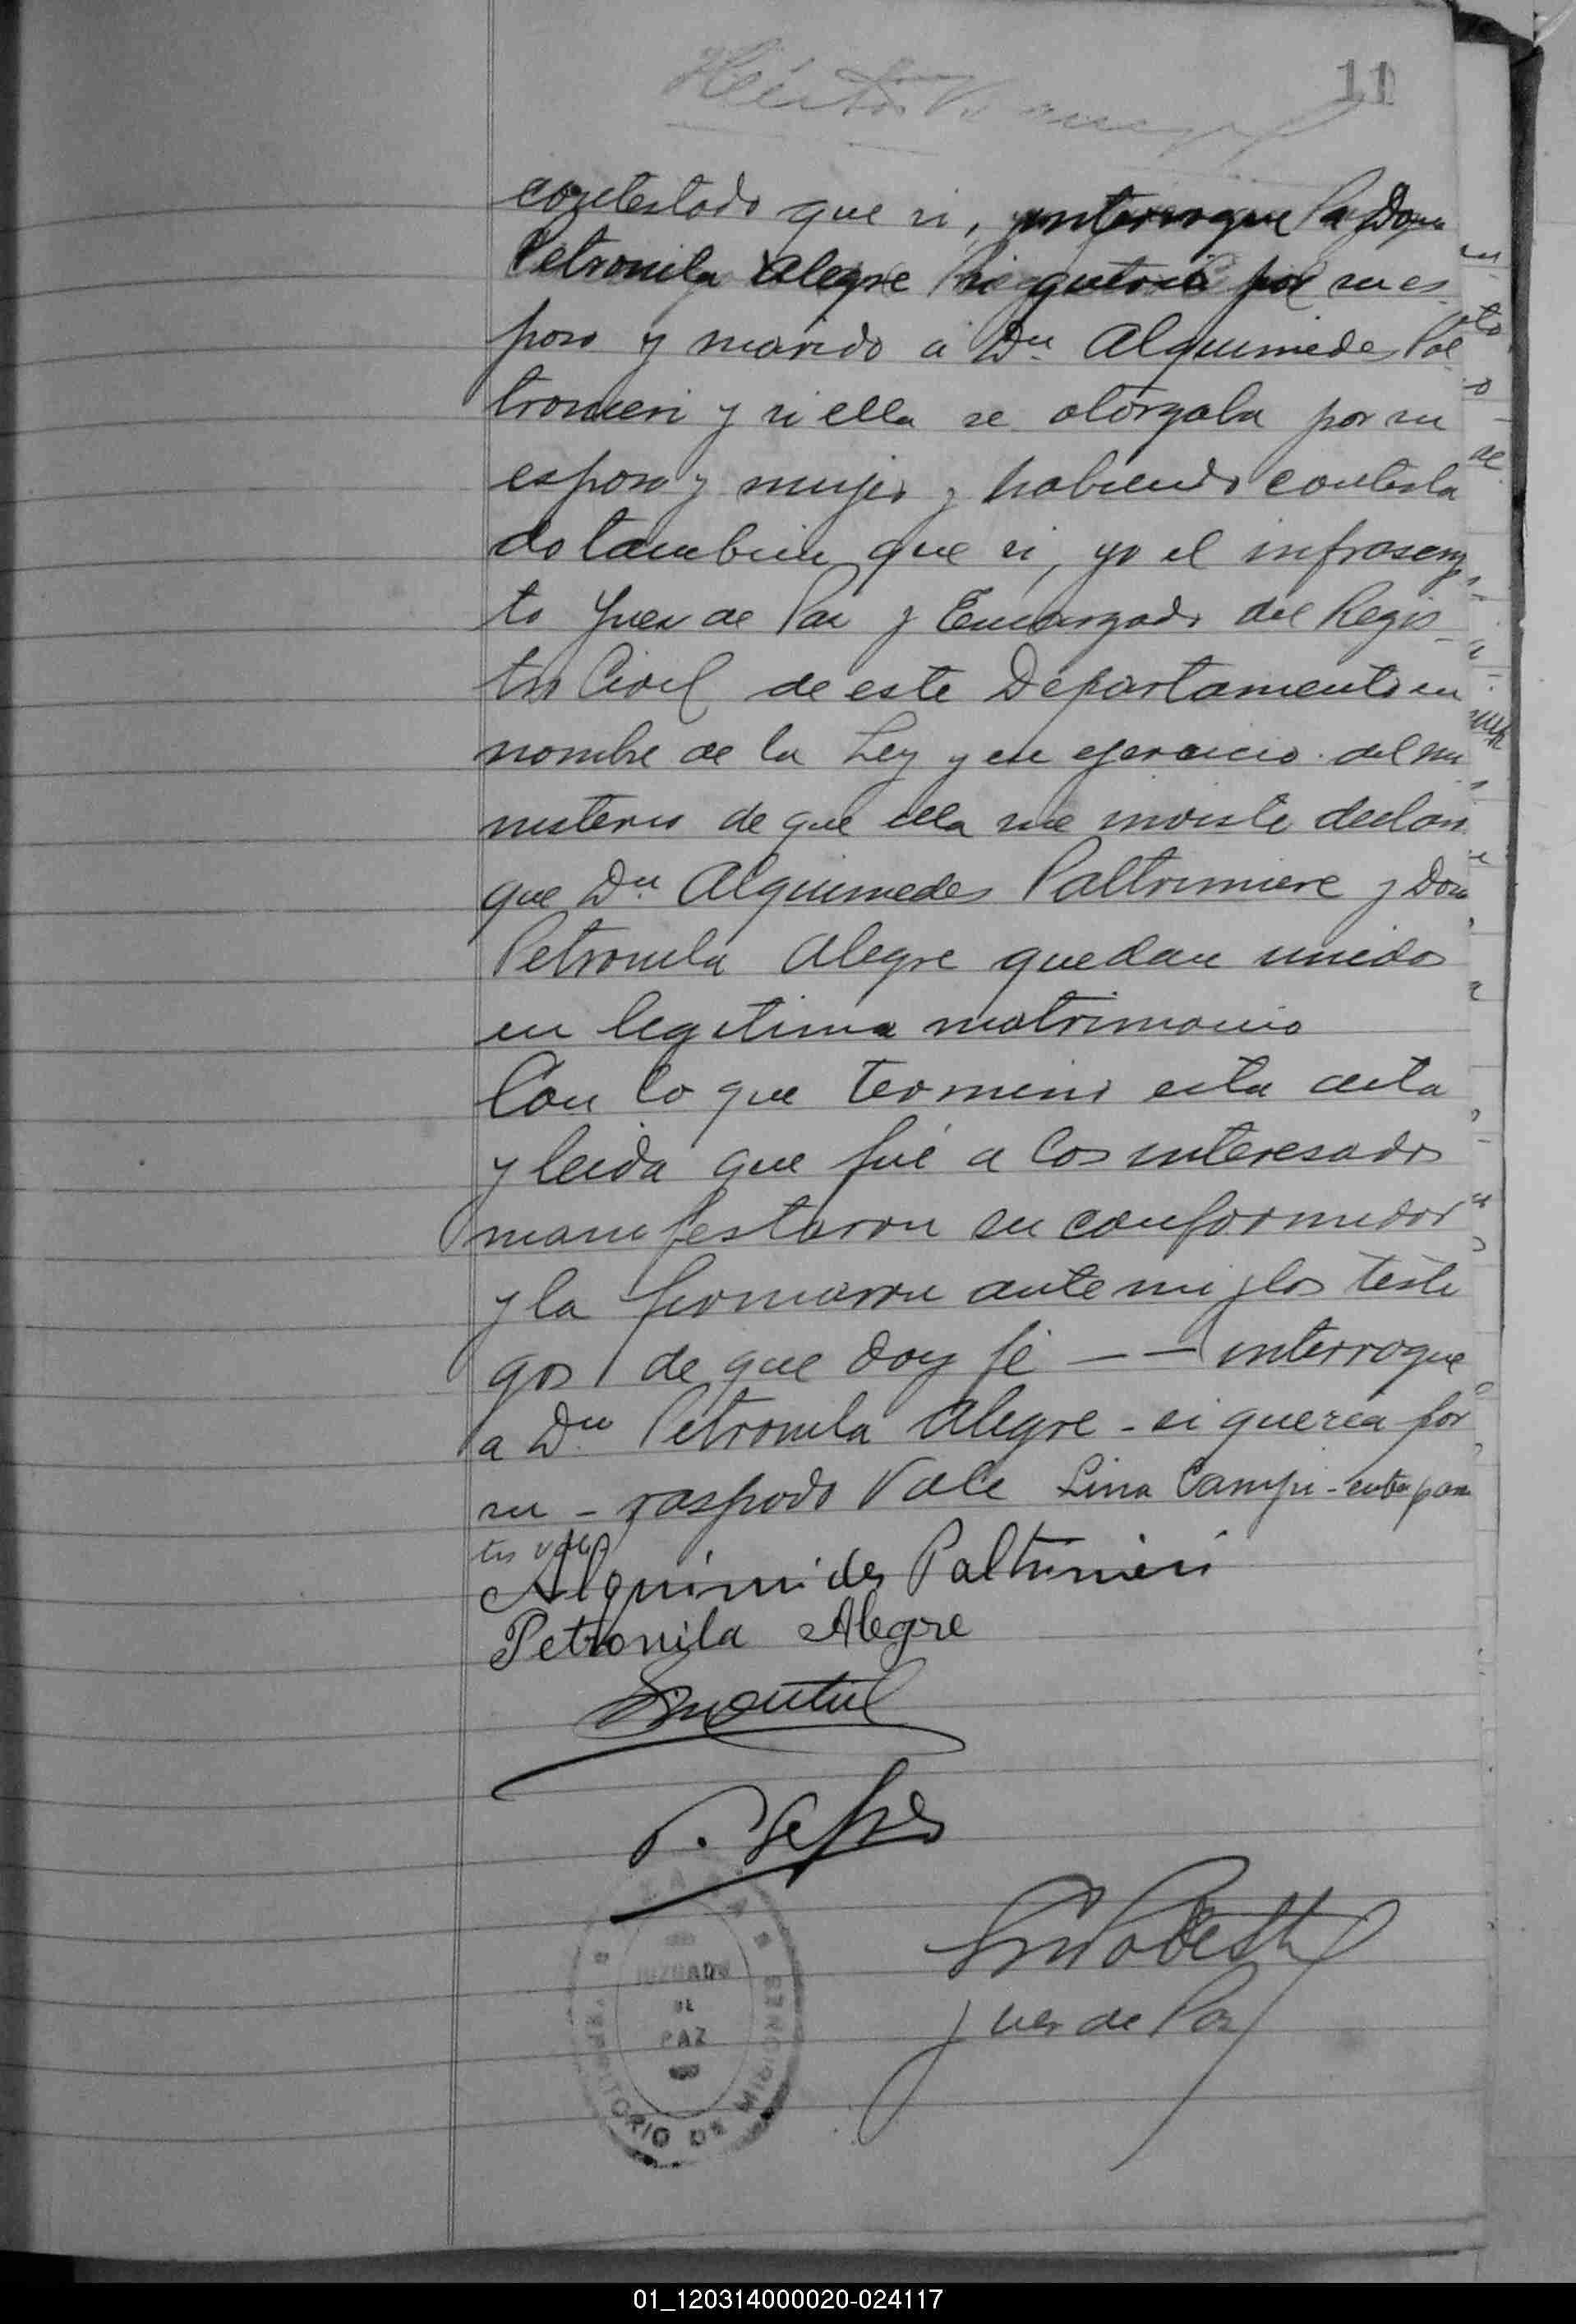 11
contestado que si, interrogue a Doña
Petronila Alegre si queria por su es
poso y marido a Dn Alquimedes Pal
tronieri y si ella se otorgaba por su
esposa y mujer y habiendo contesta
do tambien que si, yo el infrascrip
to Juez de Paz y Encargado del Regis
tro Civil de este Departamento en
nombre de la Ley y en ejercicio del mi
nisterio de que ella me inviste declaro
que Dn Alquimedes Paltrimiere y Doña
Petronila Alegre quedan unidos
en legitimo matrimonio
Con lo que termino esta acta
y leida que fué a los interesados
manifestaron su conformidad
y la firmaron ante mi y los testi
gos de que doy fé — — interrogue
a Dn Petronila Alegre - si queria por
su - raspado Vale Lina Campi - entre paren
tis vale
Alquimides Paltrinieri
Petronila Alegre
Juez de Paz
JUZGADO
DE
PAZ
TERRITORIO DE MISIONES
01_120314000020-024117